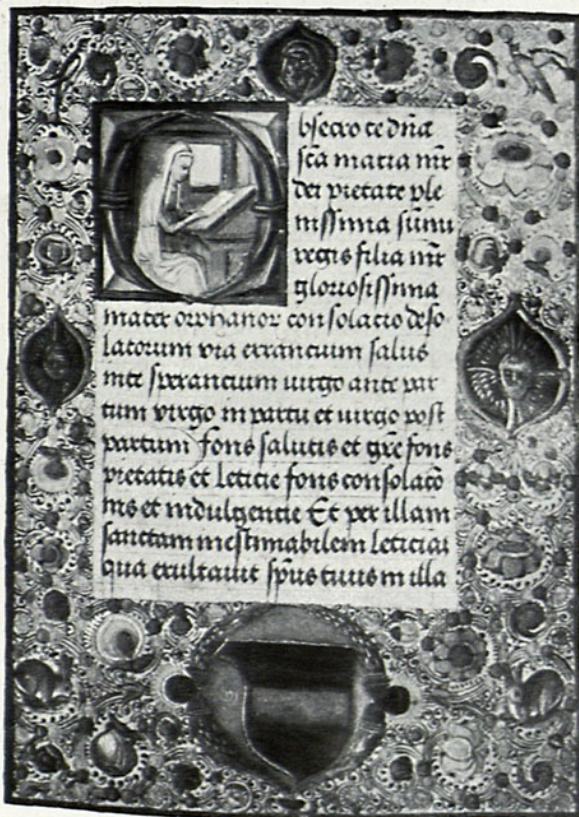 Obsecro te dña
sc̃a maria mr̃
dei pietate ple
nissima sum̃i
regis filia mr̃
gloriosissima
mater orphanor consolacio deso
latorum via errancium salus
inte sperancium uirgo ante par
tum virgo in partu et uirgo post
partum fons salutis et grẽ fons
pietatis et leticie fons consolacõ
nis et indulgencie Et per illam
sanctam inestimabilem leticiaz
qua exultauit sp̃us tuus in illa